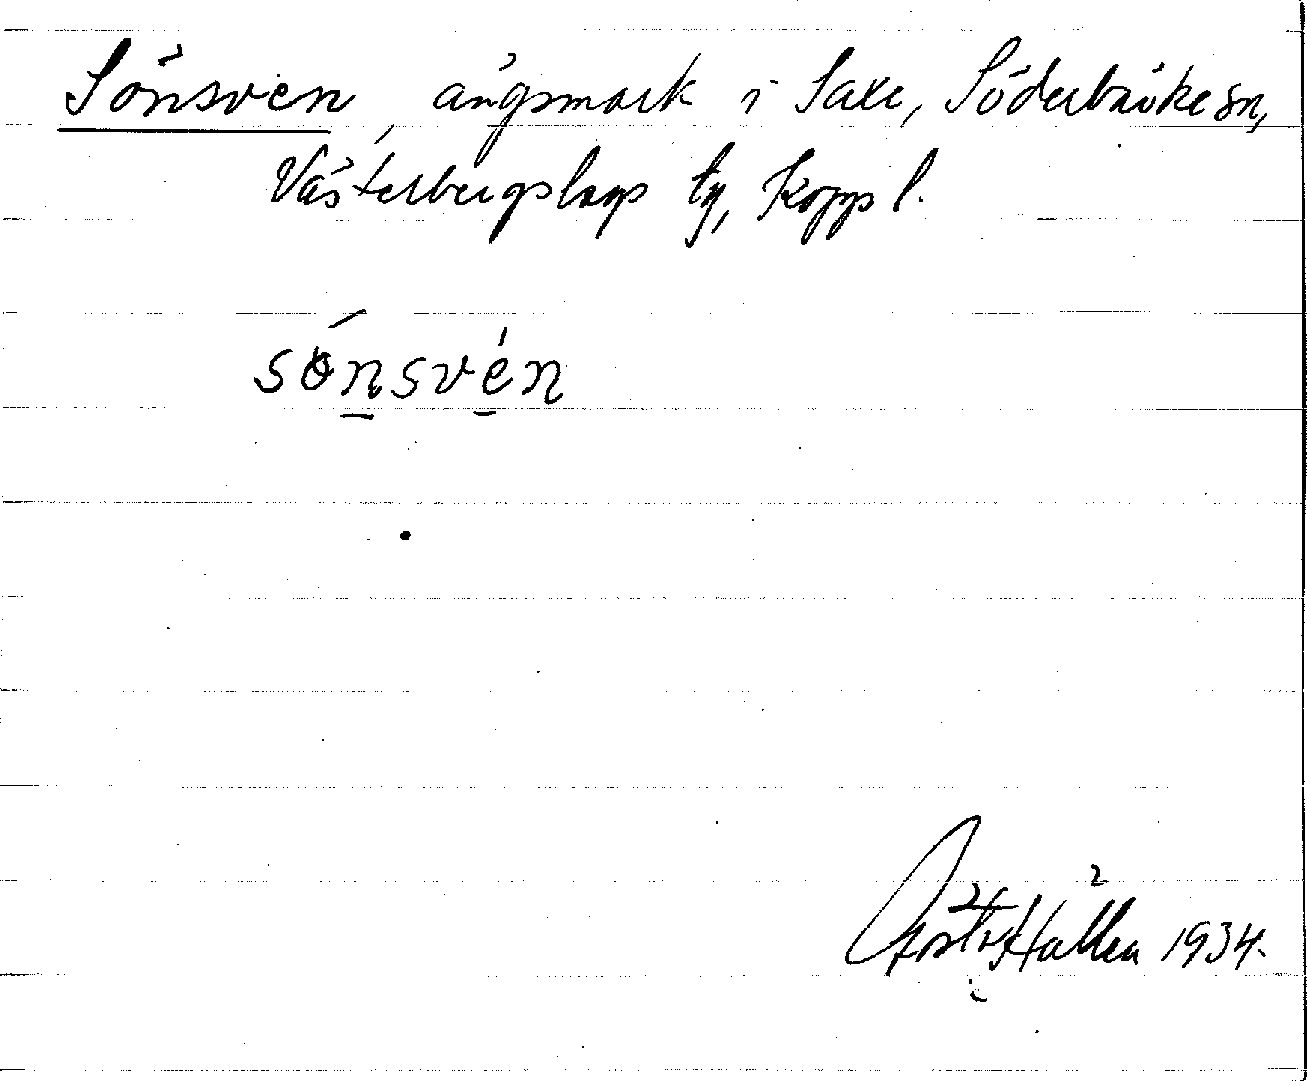 Sönsven, ängsmark i Saxe, Söderbärke sn,
Västerbergslags tg, Kopp l.
sönsvén
Hallén 1934.